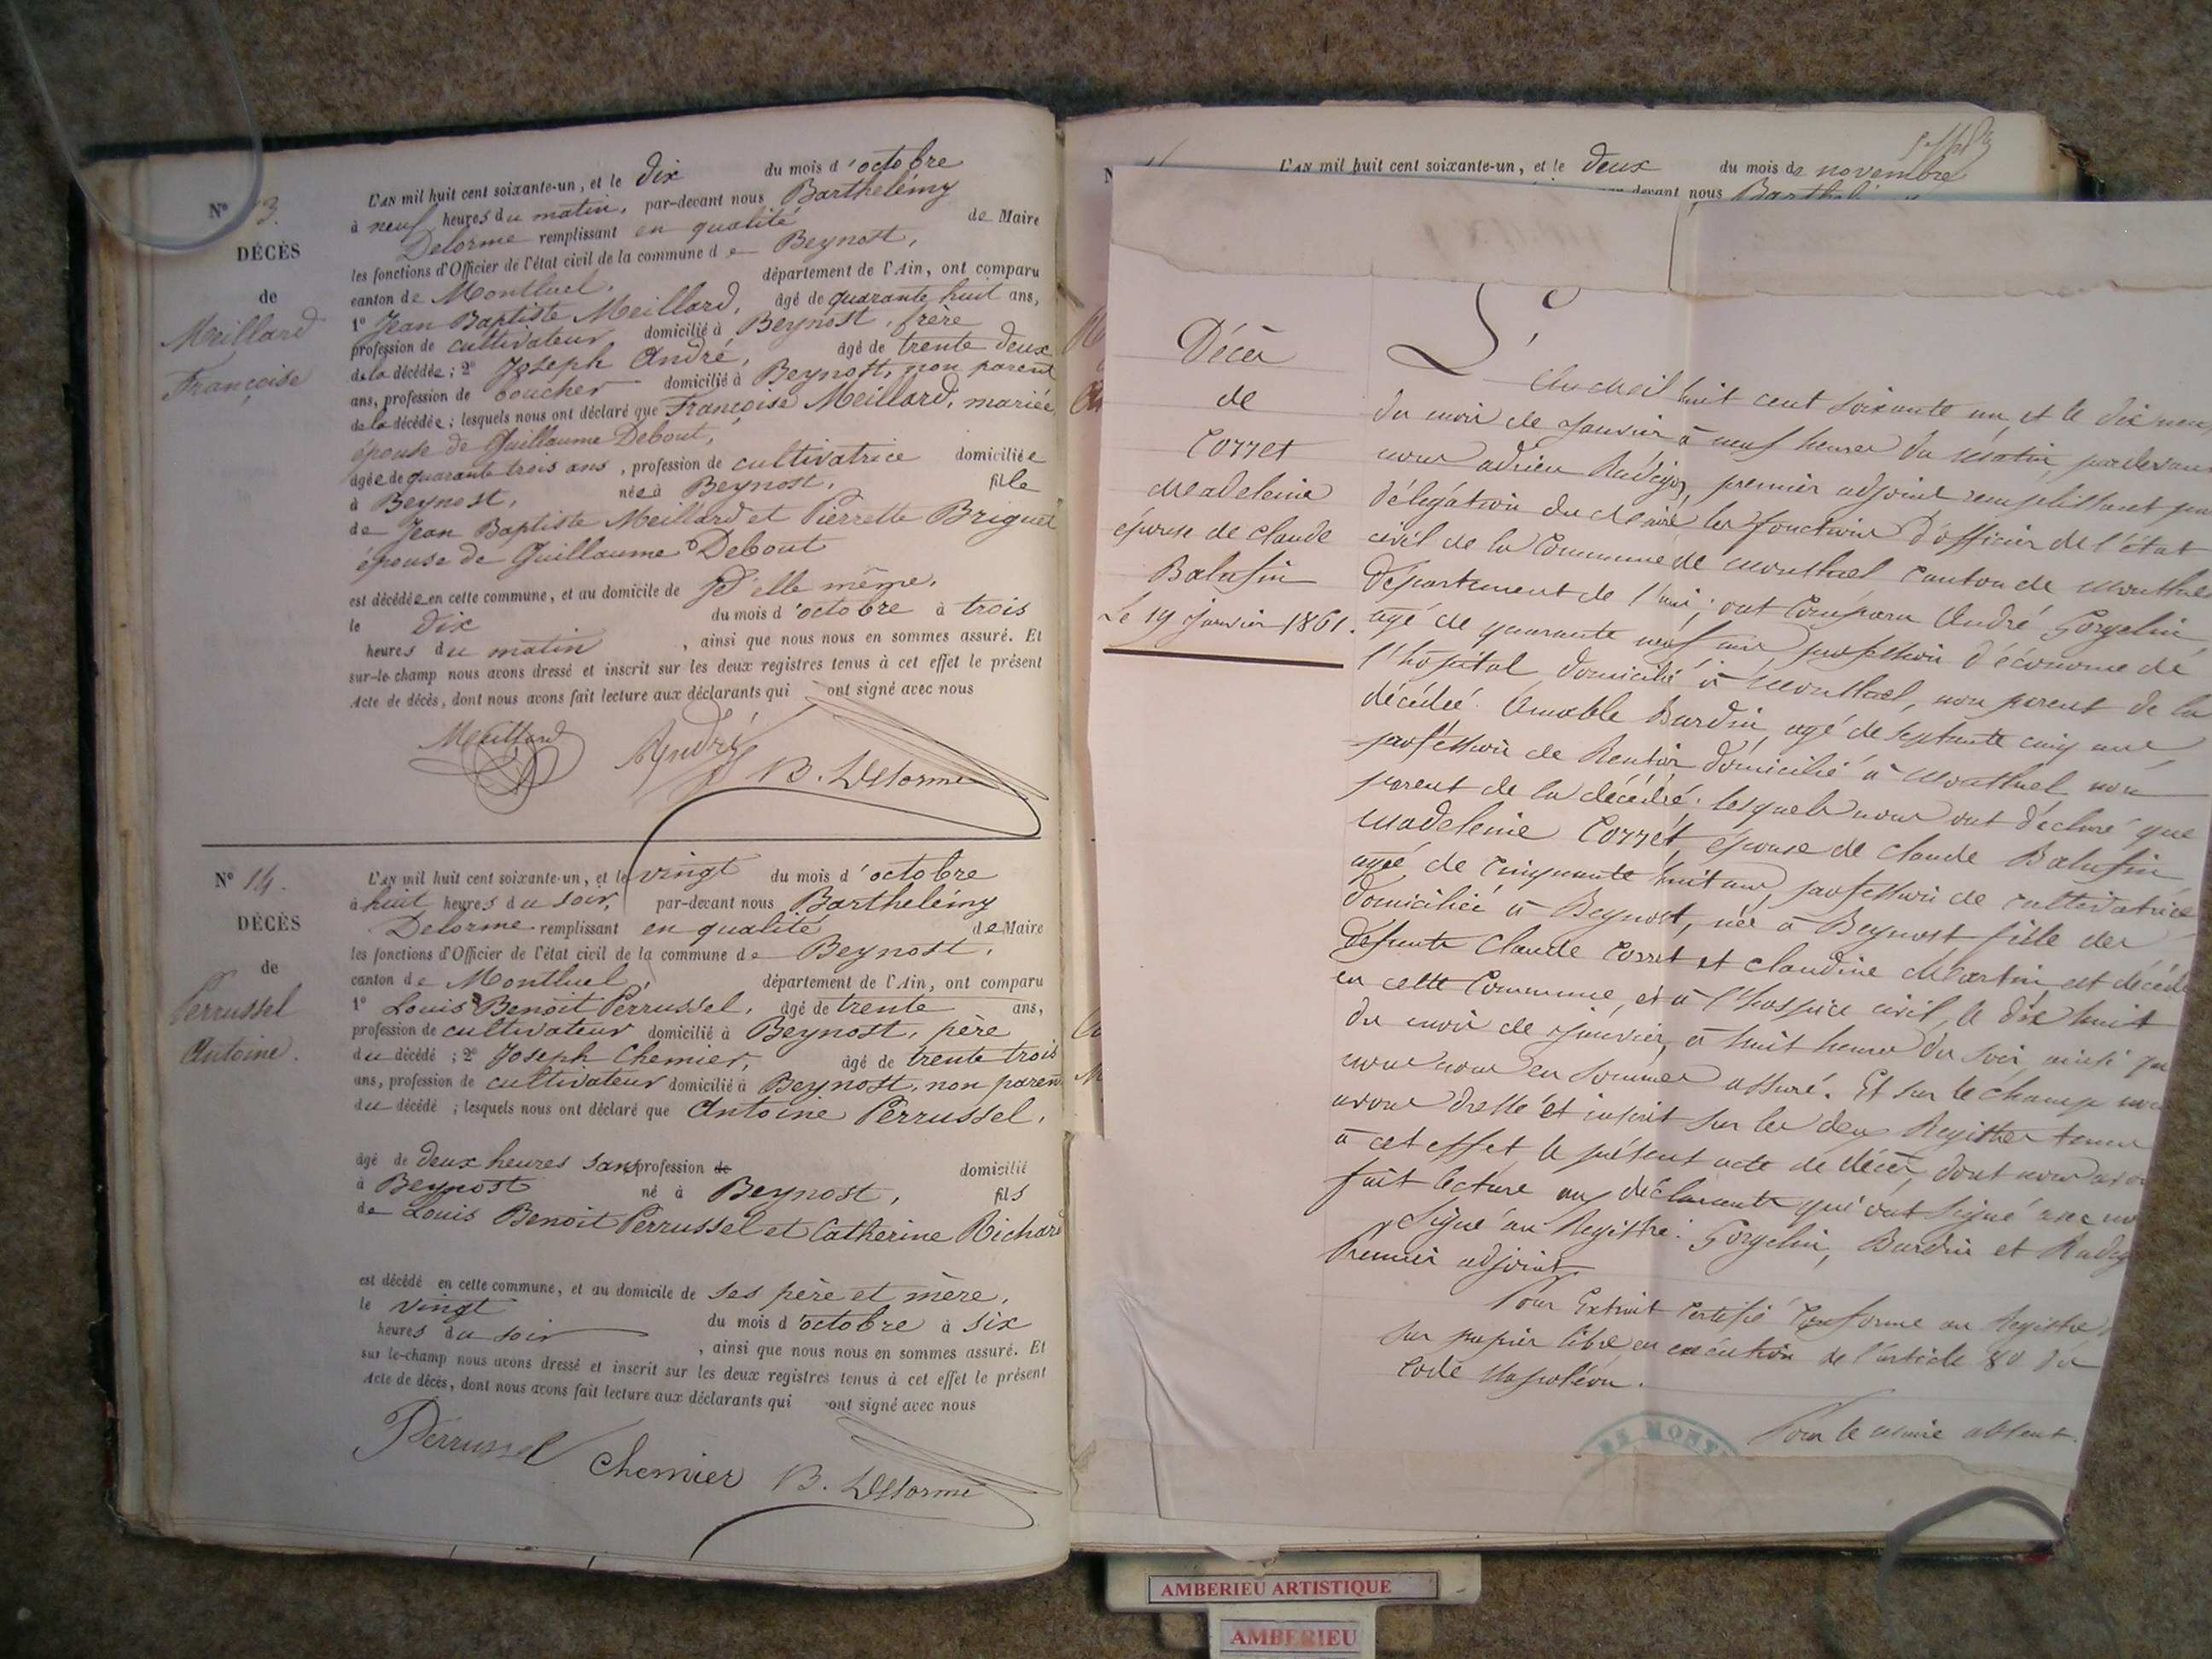 L'AN mil huit cent soixante-un, et le dix du mois d'octobre
à neuf heures du matin, par-devant nous Barthelémy
Delorme remplissant en qualité de Maire
les fonctions d'Officier de l'état civil de la commune de Beynost,
canton de Montluel, département de l'Ain, ont comparu
1° Jean Baptiste Meillard, âgé de quarante huit ans,
profession de cultivateur domicilié à Beynost, frère
de la décédée; 2° Joseph André, âgé de trente deux
ans, profession de boucher domicilié à Beynost, non parent
de la décédée; lesquels nous ont déclaré que Françoise Meillard, mariée
épouse de Guillaume Debout,
âgée de quarante trois ans, profession de cultivatrice domiciliée
à Beynost, née à Beynost, fille
de Jean Baptiste Meillard et Pierrette Briguet
épouse de Guillaume Debout
est décédée en cette commune, et au domicile de d'elle même,
le dix du mois d'octobre à trois
heures du matin, ainsi que nous nous en sommes assuré. Et
sur-le-champ nous avons dressé et inscrit sur les deux registres tenus à cet effet le présent
Acte de décès, dont nous avons fait lecture aux déclarants qui ont signé avec nous
Meillard André B. Delorme
N° 3.
DÉCÈS
de
Meillard
Françoise
N° 14.
DÉCÈS
de
Perrussel
Antoine.
L'AN mil huit cent soixante-un, et le vingt du mois d'octobre
à huit heures du soir, par-devant nous Barthelémy
Delorme remplissant en qualité de Maire
les fonctions d'Officier de l'état civil de la commune de Beynost,
canton de Montluel, département de l'Ain, ont comparu
1° Louis Benoit Perrussel, âgé de trente ans,
profession de cultivateur domicilié à Beynost, père
du décédé; 2° Joseph Chemier, âgé de trente trois
ans, profession de cultivateur domicilié à Beynost, non paren
du décédé; lesquels nous ont déclaré que Antoine Perrussel,
âgé de deux heures sans profession de domicilié
à Beynost né à Beynost, fils
de Louis Benoit Perrussel et Catherine Richard
est décédé en cette commune, et au domicile de ses père et mère,
le vingt du mois d'octobre à six
heures du soir, ainsi que nous nous en sommes assuré. Et
sur-le-champ nous avons dressé et inscrit sur les deux registres tenus à cet effet le présent
Acte de décès, dont nous avons fait lecture aux déclarants qui ont signé avec nous
Perrussel Chemier B. Delorme
L'AN mil huit cent soixante-un, et le deux du mois de novembre
devant nous
Décès
de
Corret
Madeleine
épouse de Claude
Balufin
Le 19 janvier 1861.
L'An Mil huit cent soixante un, et le dix neu
du mois de Janvier à neuf heures du Matin, pardevan
nous adrien premier adjoint remplissant par
délégation du Maire les fonctions d'officier de l'état
civil de la Commune de Montluel Canton de Montlue
département de l'ain; ont Comparu André Gorgelin
agé de quarante neuf ans profession d'économe de
l'hôpital domicilié à Montluel, non parent de la
décédée. Amable Burdin, agé de septante cinq ans
profession de Rentier domicilié à Montluel non
parent de la décédée. lesquels nous ont déclaré que
Madeleine Corret, épouse de Claude Balufin
agée de Cinquante huit ans, profession de cultivatrice
domiciliée à Beynost, née à Beynost fille des
défunts Claude Corret et Claudine Martin est décédé
en cette Commune, et à l'hospice civil, le dix huit
du mois de janvier, à huit heures du soir ainsi que
nous nous en sommes assuré. Et sur le champ nou
avons dressé et inscrit sur les deux Registres tenus
à cet effet le présent acte de décès, dont nous avon
fait lecture aux déclarants qui ont signé avec no
Signé au Registre: Gorgelin, Burdin et
Premier adjoint.
Pour Extrait Certifié Conforme au Registre
sur papier libre en exécution de l'article 80 du
Code Napoléon.
Pour le maire absent.
DE MONT
AMBERIEU ARTISTIQUE
AMBERIEU